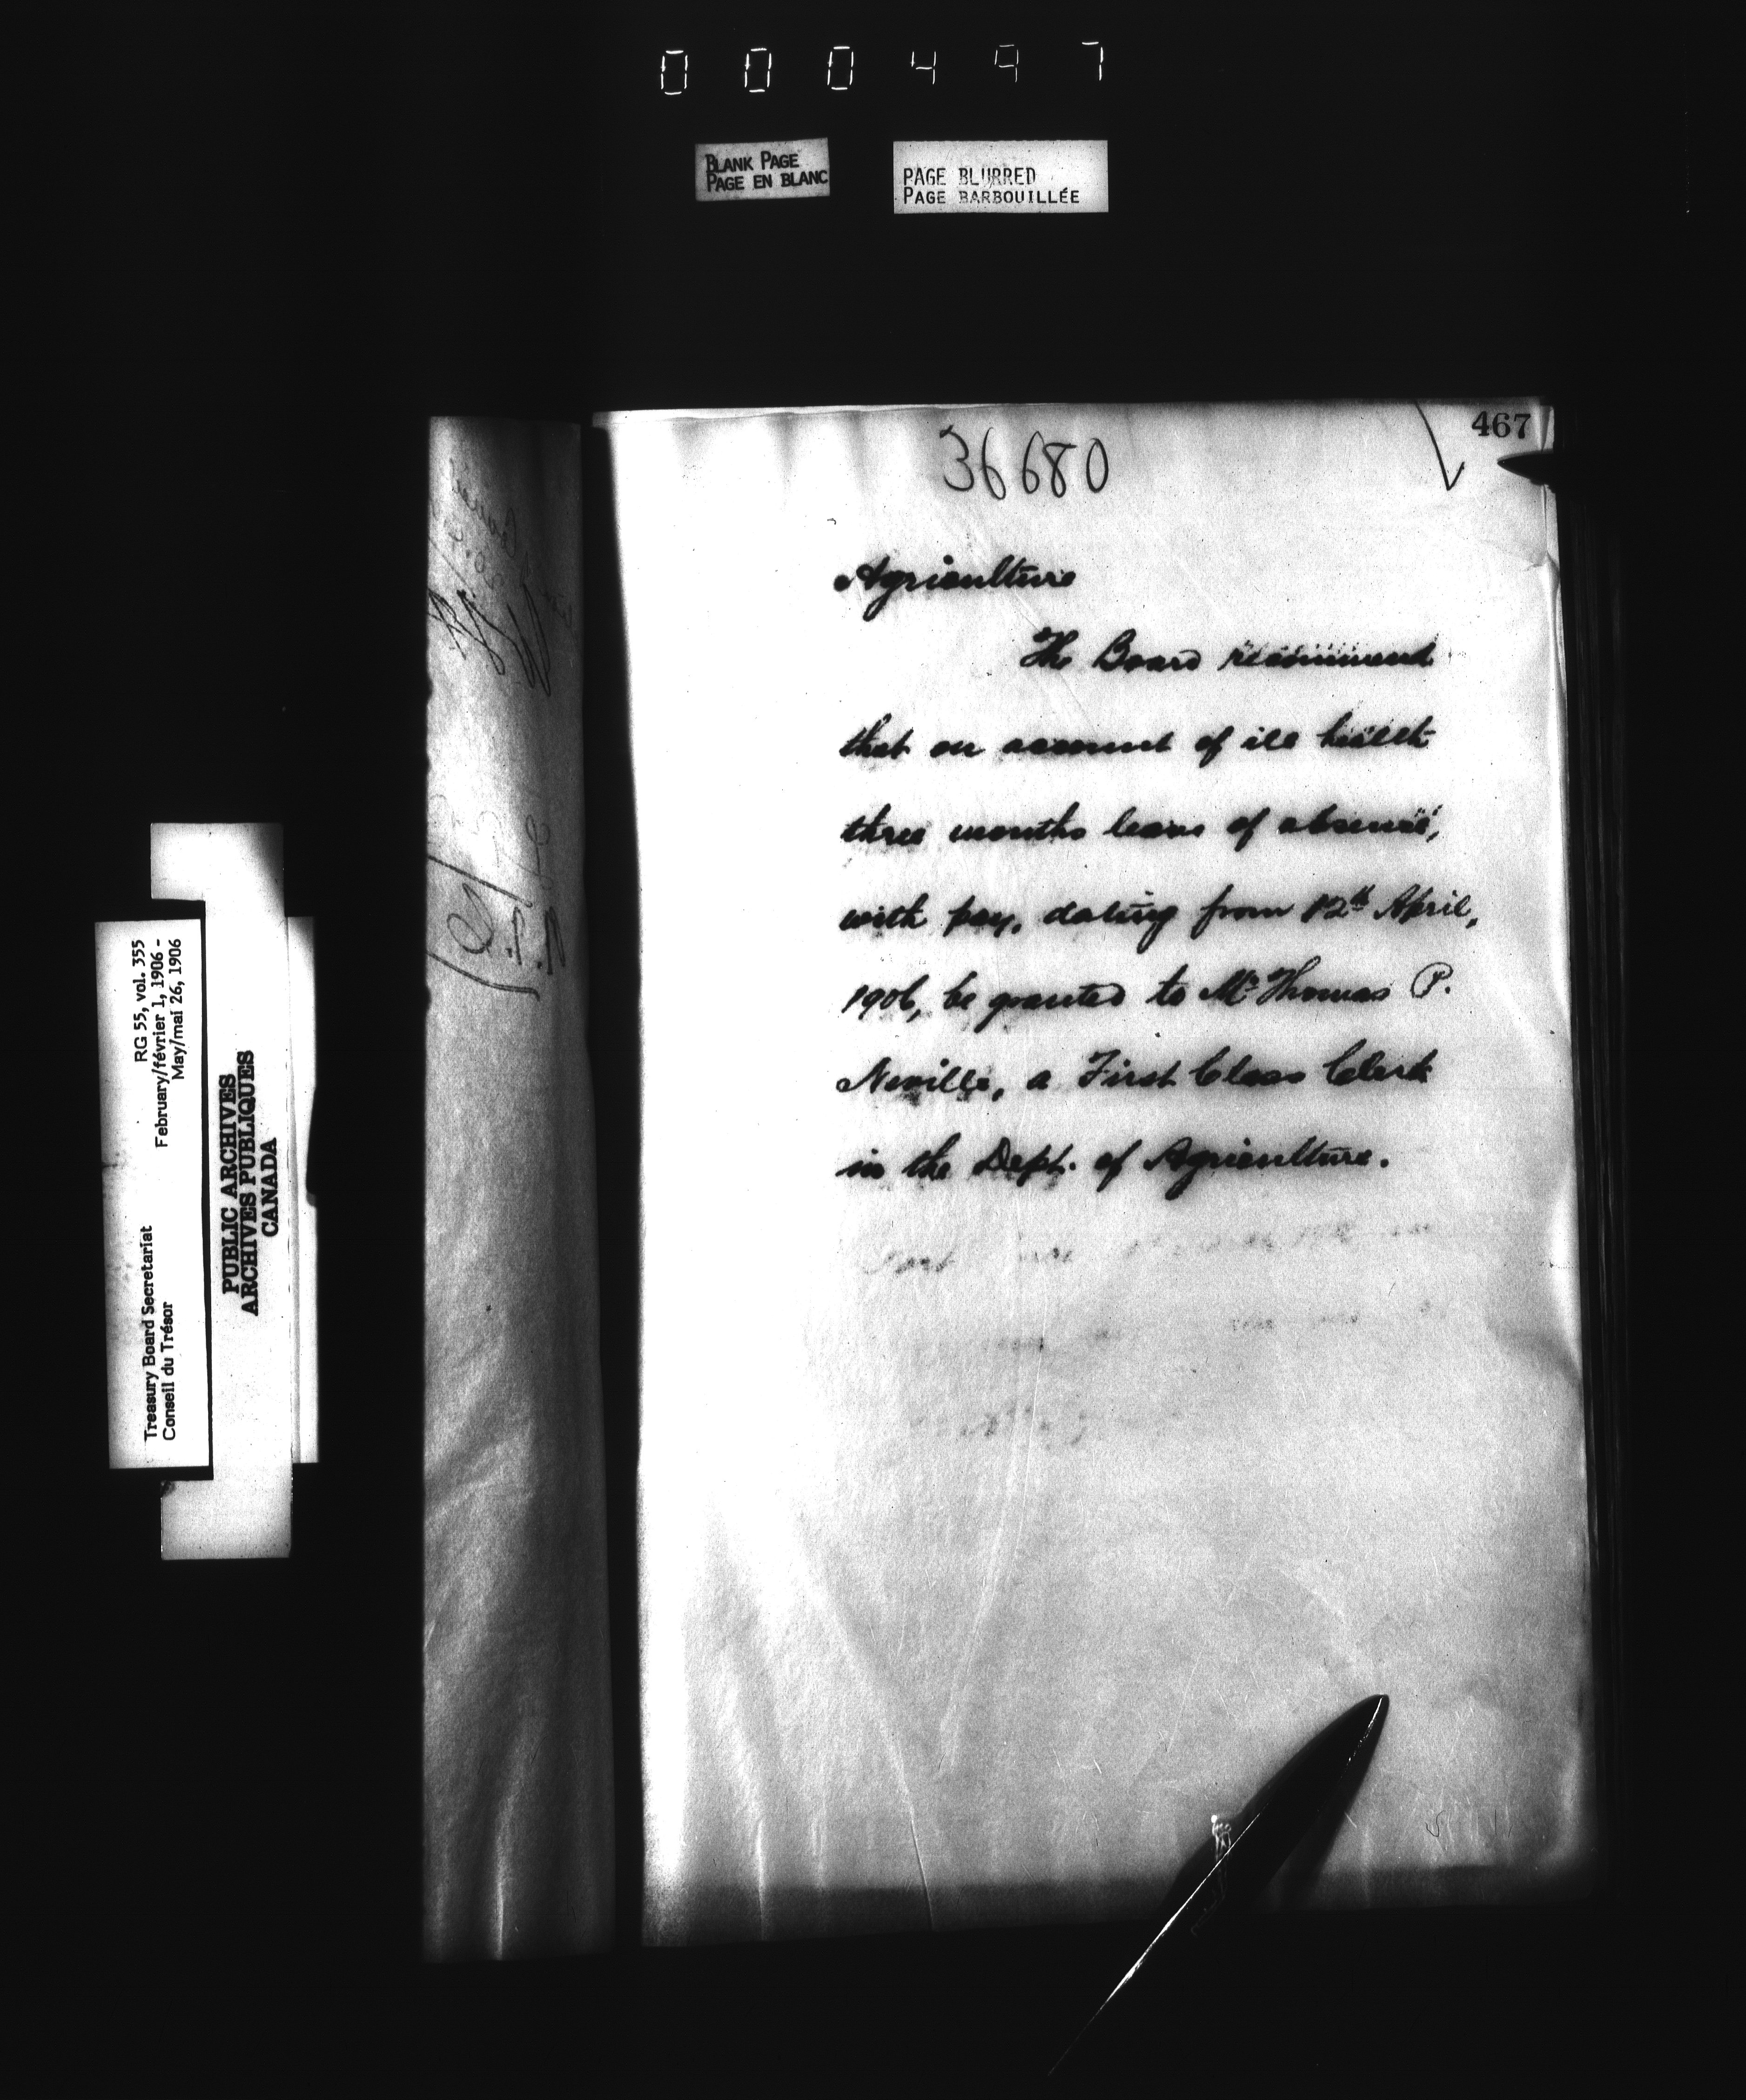 000497
BLANK PAGE
PAGE EN BLANC
PAGE BLURRED
PAGE BARBOUILLÉE
467
36680
Agriculture
The Board recommend
that on account of ill health
three months leave of absence,
with pay, dating from 12th April,
1906, be granted to Mr Thomas P.
Neville, a First Class Clerk
in the Dept. of Agriculture.
Treasury Board Secretariat RG 55, vol. 355
Conseil du Trésor February/février 1, 1906 -
May/mai 26, 1906
PUBLIC ARCHIVES
ARCHIVES PUBLIQUES
CANADA